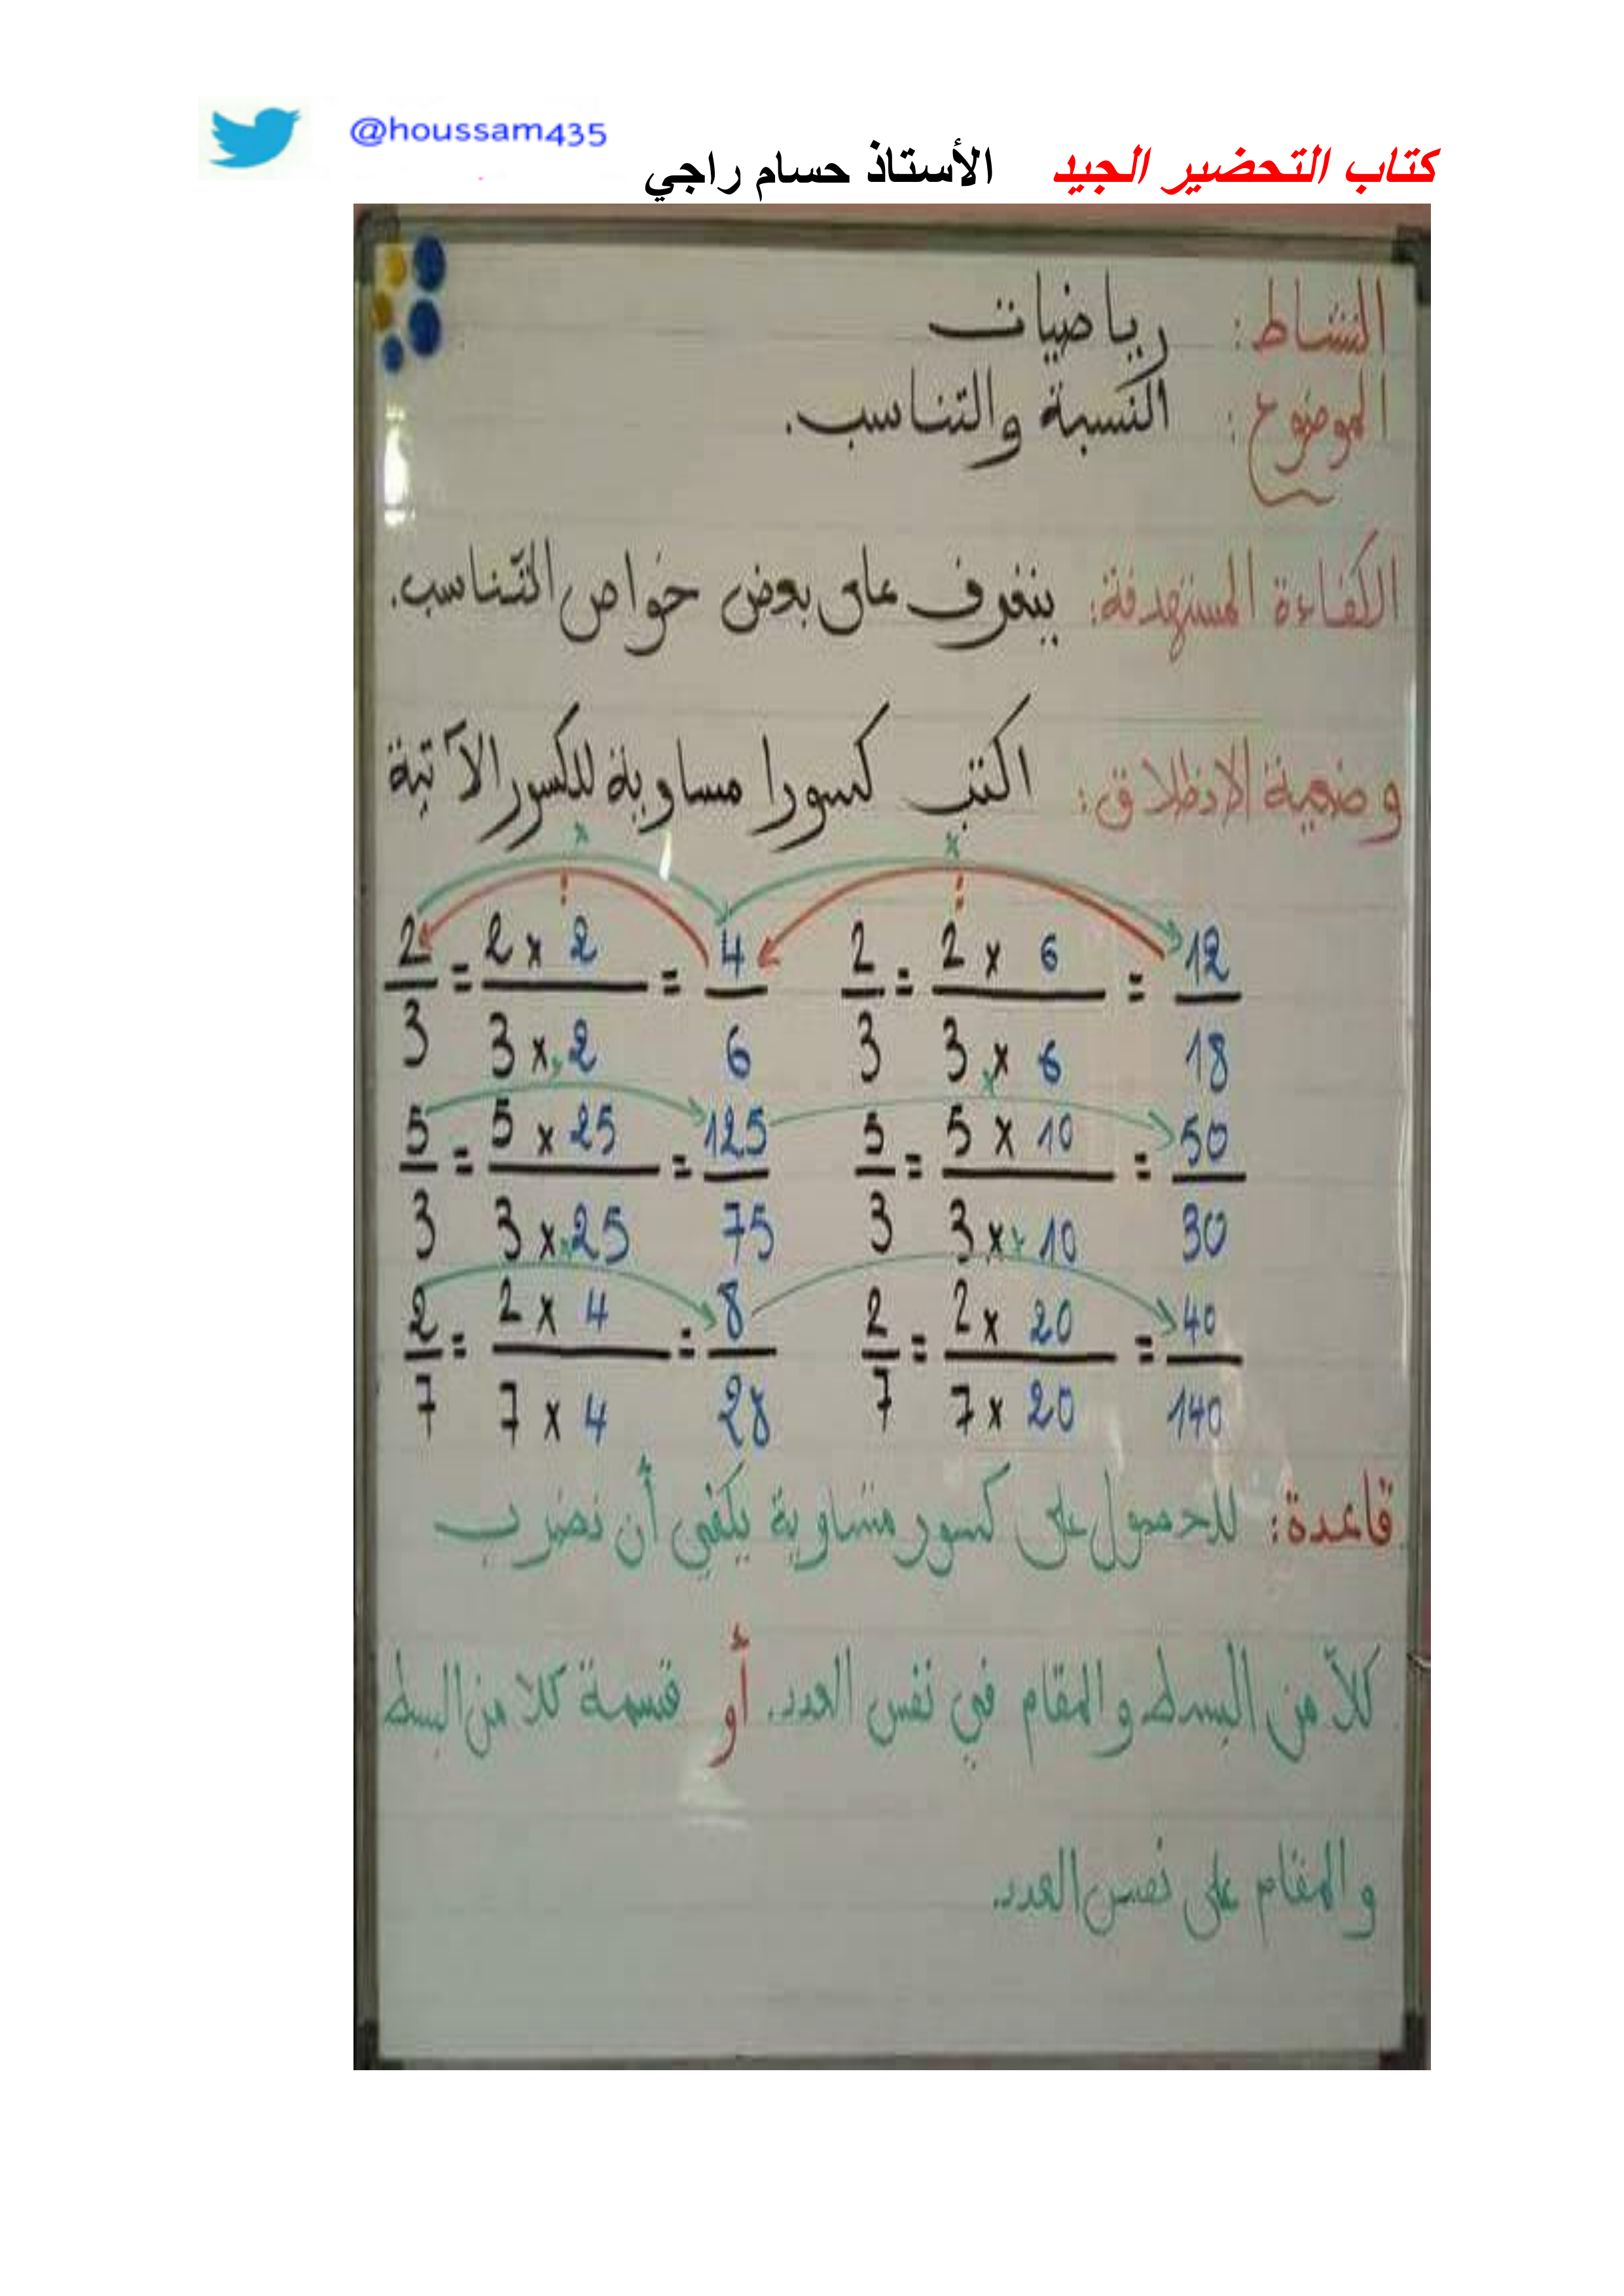 @houssam435
كتاب التحضير الجيد الأستاذ حسام راجي
النشاط: رياضيات
الموضوع: النسبة والتناسب.
الكفاءة المستهدفة: يتعرف على بعض خواص التناسب.
وضعية الانطلاق: اكتب كسورا مساوية للكسور الآتية
2/3 = 2 × 2 / 3 × 2 = 4/6 2/3 = 2 × 6 / 3 × 6 = 12/18
5/3 = 5 × 25 / 3 × 25 = 125/75 5/3 = 5 × 10 / 3 × 10 = 50/30
2/7 = 2 × 4 / 7 × 4 = 8/28 2/7 = 2 × 20 / 7 × 20 = 40/140
قاعدة: للحصول على كسور متساوية يكفي أن نضرب
كلاّ من البسط والمقام في نفس العدد. أو قسمة كلا من البسط
والمقام على نفس العدد.